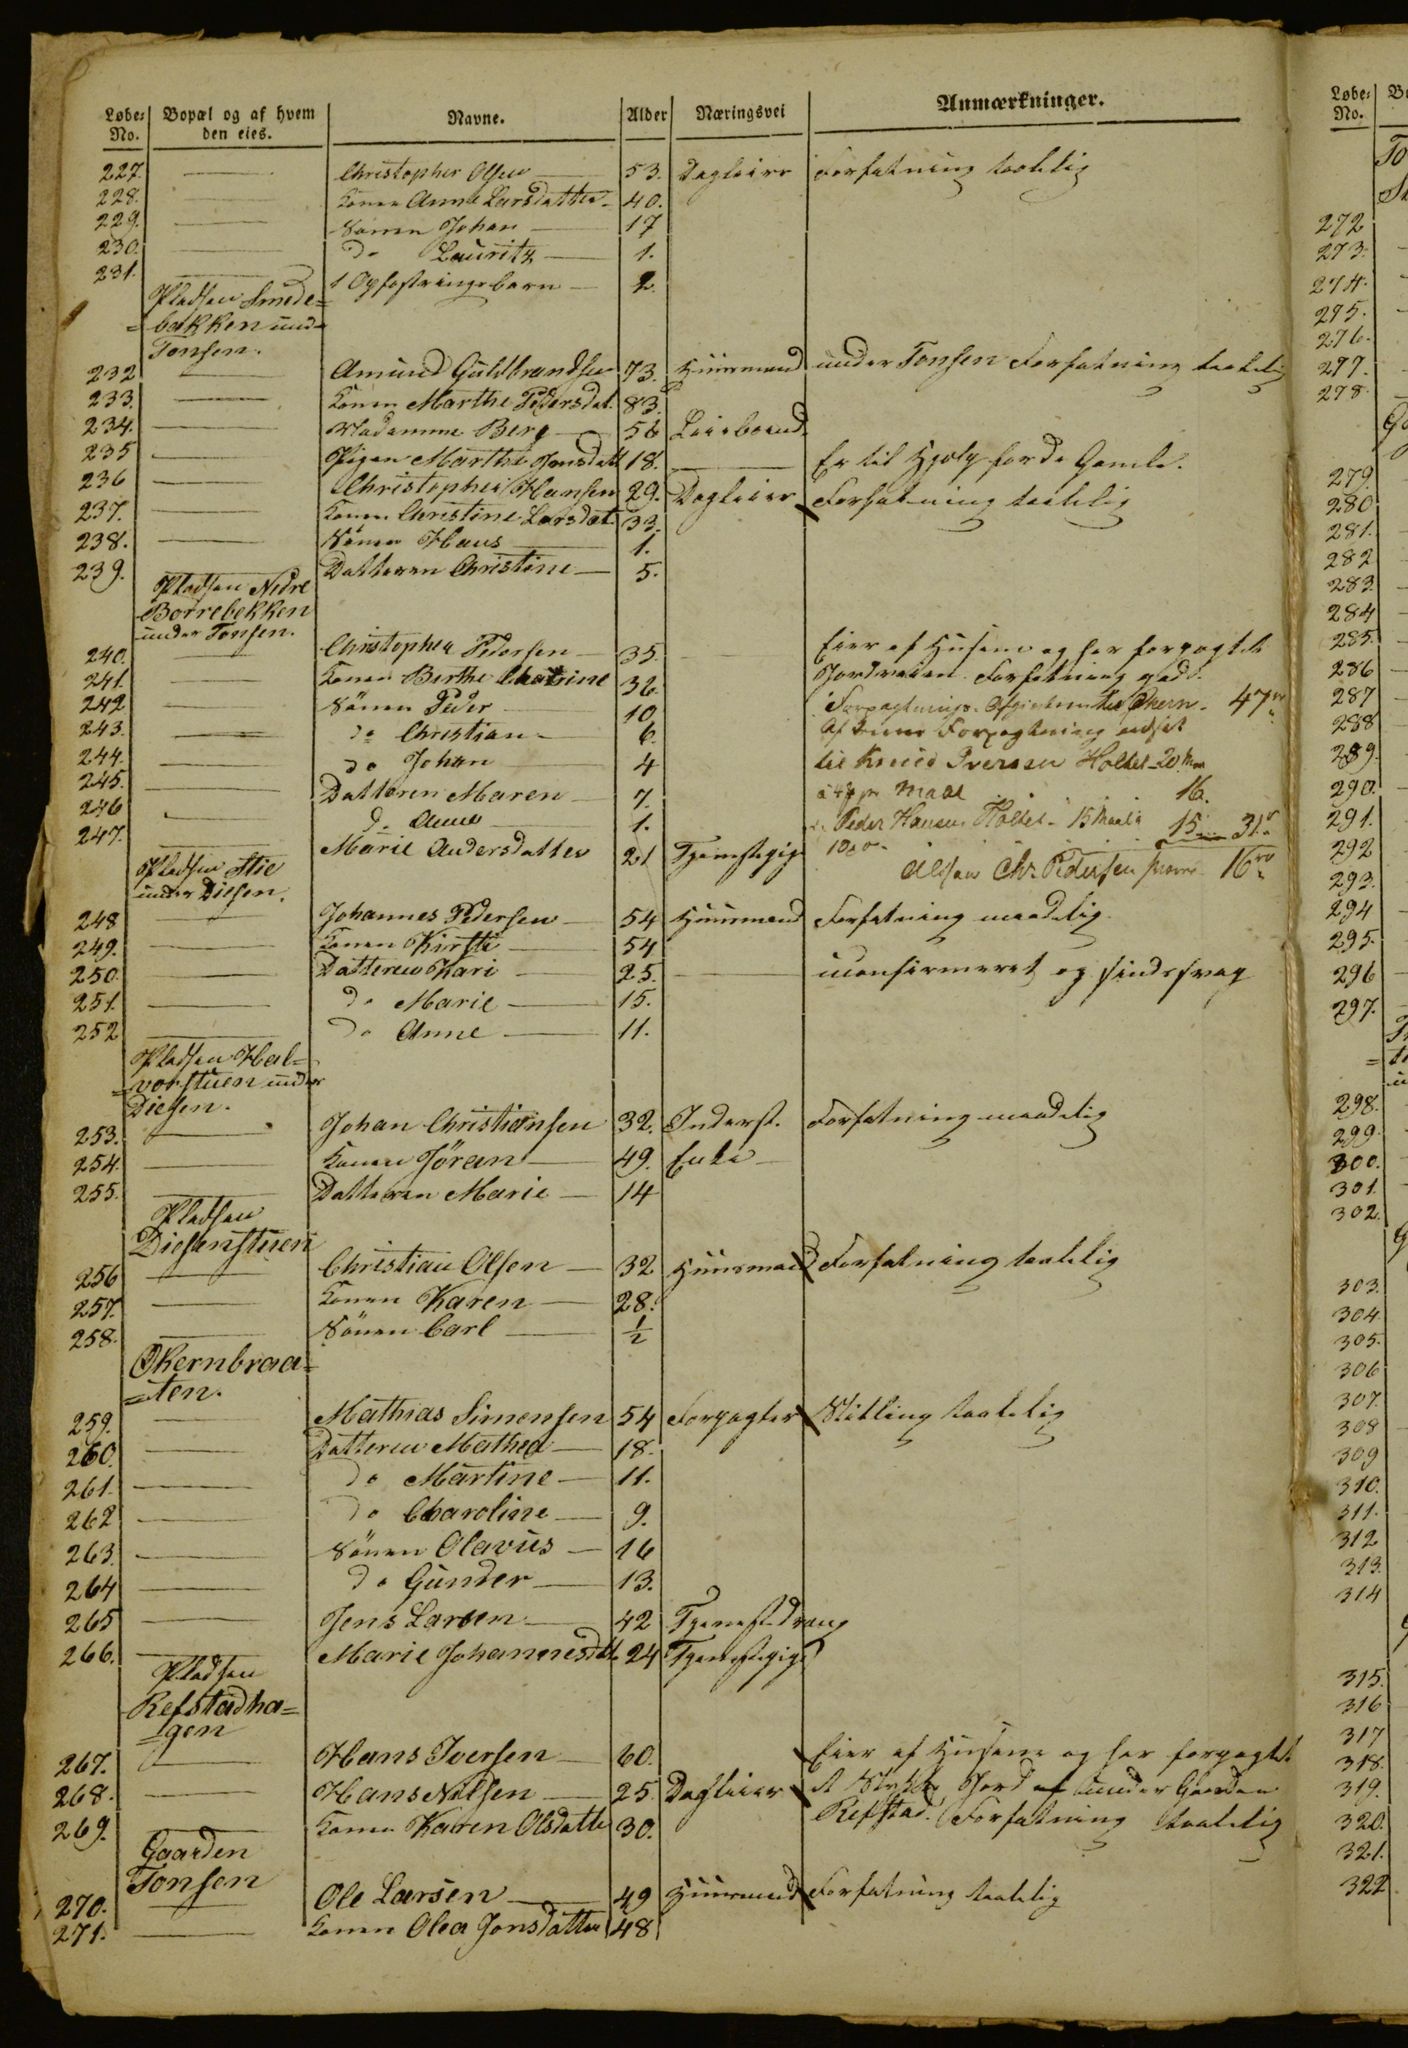 Løbe- No. Bopæl og af hvem den eies. Navne. Alder Næringsvei Anmærkninger.
227. Christopher Olsen 53. Dagleier Forfatning taalelig
228. Konen Anne Larsdatter 40.
229. Sönen Johan 17
230. do Lauritz 1.
231. 1 Opfostringsbarn 2.
Pladsen Smede=
=bakken under
Tonsen.
232 Amund Guldbrandsen 73. Huusmand under Tonsen Forfatning taalelig
233. Konen Marthe Pedersdat. 83.
234. Madamme Berg 56 Leieboende
235 Pigen Marthe Jonsdatt 18. Er til Hjelp for de Gamle.
236 Christopher Hansen 29. Dagleier Forfatning taalelig
237. Konen Christine Larsdat. 33.
238. Sönen Hans 1.
239. Datteren Christine 5.
Pladsen Nedre
Borrebekken
under Tonsen.
240. Christopher Pedersen 35. Eier af Husene og har forpagtet
241. Konen Berthe Chatrine 36. Jordveien. Forfatning god.
242 Sönen Peder 10 Forpagtnings-Afgivten til Økern 47
243. do Christian 6. Af denne Forpagtning
244. do Johan 4 til Knud Iversen Holtet 20 Maal
245. Datteren Maren 7. Maal 16.
246 do Anne 1. Peder Hansen Holtet 15 Maal 15 31
247. Marie Andersdatter 21 Tjenestepige Chr Pedersen 16
Pladsen Stie
under Diesen.
248 Johannes Pedersen 54 Huusmand Forfatning maadelig
249. Konen Kirsti 54
250. Datteren Kari 25. uconfirmeret og sindssvag
251. do Marie 15.
252 do Anne 11.
Pladsen Hal=
=vorstuen under
Diesen.
253. Johan Christiansen 32. Inderst. Forfatning maadelig
254. Konen Jöran 49. Enke
255. Datteren Marie 14
Pladsen
Diesenstuen
256 Christian Olsen 32 Huusmand Forfatning taalelig
257. Konen Karen 28.
258. Sönen Carl ½
Økernbraa=
=ten.
259. Mathias Simensen 54 Forpagter Stilling taalelig
260. Datteren Mathea 18.
261. do Martine 11.
262 do Charoline 9.
263. Sönen Olavus 16
264 do Gunder 13.
265 Jens Larsen 42 Tjenestedreng
266. Marie Johannesdtt. 24 Tjenestepige
Pladsen
Refstadha=
=gen
267. Hans Iversen 60. Eier af Husene og har forpagtet
268. Hans Nilsen 25. Dagleier et Stykke Jord af under Gaarden
269. Konen Karen Olsdatte 30. Refstad. Forfatning taalelig
Gaarden
Tonsen
270. Ole Larsen 49 Huusmand Forfatning taalelig
271. Konen Olea Jonsdatter 48
Løbe- No.
272
273.
274.
275.
276.
277.
278.
279.
280
281.
282
283.
284
285.
286
287
288
289.
290.
291.
292
293.
294
295.
296
297.
298.
299.
300.
301.
302.
303.
304.
305.
306
307.
308
309
310.
311.
312
313.
314
315.
316
317
318.
319.
320.
321.
322